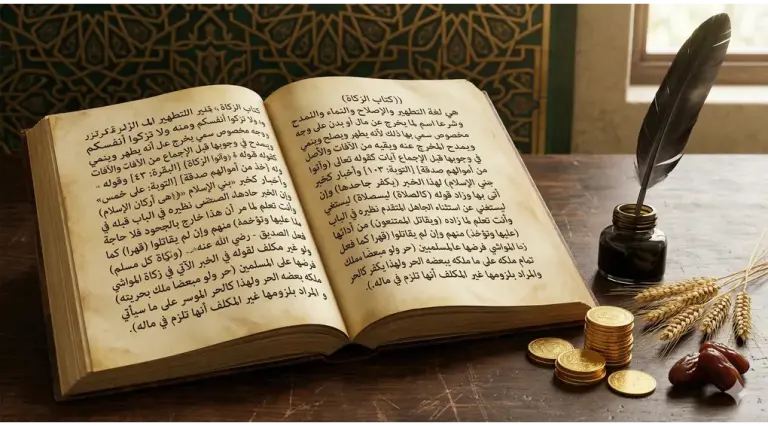 ((كتاب الزكاة)
هي لغة التطهير والإصلاح والنماء والتمدح
وشرعا اسم لما يخرج عن مال أو بدن على وجه
مخصوص سمي بها ذلك لأنه يطهر ويصلح وينمي
ويمدح المخرج عنه ويقيه من الآفات والأصل
في وجوبها قبل الإجماع آيات كقوله تعالى (وآتوا
من أموالهم صدقة) [التوبة: ١٠٣] وأخبار كخبر
بني الإسلام) لهذا الخبر (يكفر جاحدها) وإن
أتى بها وزاد قوله (كالصلاة)
يستغنى عن الجاهل المتقدم نظيره في الباب
وأنت تعلم لما زاده (ويقاتل الممتنعون) من أدائها
(عليها وتؤخذ) منهم وإن لم يقاتلوا (قهرا) كما فعل
زكا المواشي فرضها المسلمين (حر ولو مبعضا ملك
تمام ملكه على ما ملكه ببعضه الحر ولهذا يكفر كالحر
والمراد بلزومها غير المكلف أنها تلزم في ماله).
كتاب الزكاة التطهير
ولا تزكوا أنفسكم ومنه ولا تزكوا أنفسكم
وجه مخصوص سمي يخرج عل أنه يطهر وينمي
ويمدح في وجوبها قبل الإجماع من الآفات والآفات
كقوله قوله (وآتوا الزكاة) [البقرة: ٤٣] وقوله
وله (خذ من أموالهم صدقة) [التوبة: على خمس)
وأخبار كخبر «بني الإسلام (هي أركان الإسلام)
وإن الخبر نظيره في الباب قبله في
وأنت تعلم لما مر أن هذا خارج بالجحود فلا حاجة
لما عليها وتؤخذ) منهم وإن لم يقاتلوا (قهرا) كما
فعل الصديق - رضي الله عنه -. (وزكاة كل مسلم)
ولو غير مكلف لقوله في الخبر الآتي في زكاة المواشي
فرضها على المسلمين (حر ولو مبعضا ملك بحريته)
ملكه بعضه الحر ولهذا كالحر الموسر على ما سيأتي
و المراد بلزومها غير المكلف أنها تلزم في ماله).